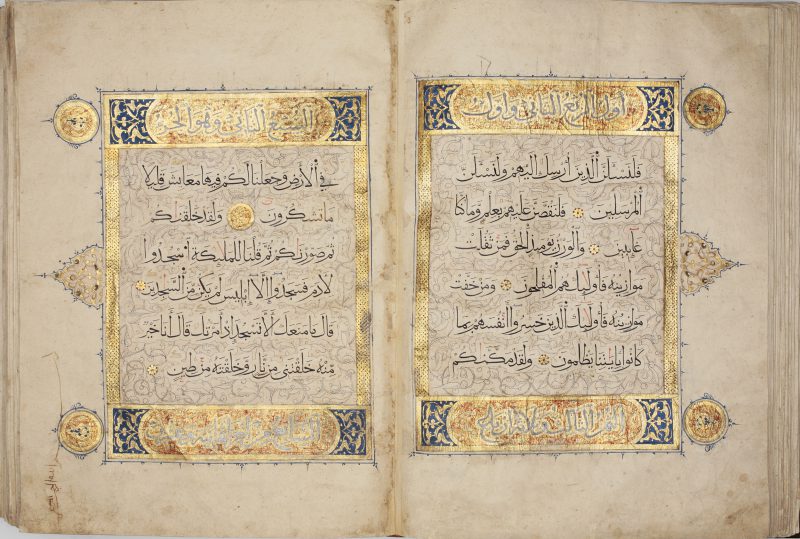 أول الربع الثاني وأول
فلنسئلن الذين أرسل إليهم ولنسئلن
المرسلين فلنقصن عليهم بعلم وما كنا
غايبين والوزن يوميذ الحق فمن ثقلت
موازينه فأوليك هم المفلحون ومن خفت
موازينه فأوليك الذين خسروا أنفسهم بما
كانوا باياتنا يظلمون ولقد مكنكم
السبع الثاني وهو الجزء
في الأرض وجعلنا لكم فيها معايش قليلا
ما تشكرون ولقد خلقنكم
ثم صورنكم ثم قلنا للمليكة اسجدوا
لادم فسجدوا إلا إبليس لم يكن من السجدين
قال ما منعك ألا تسجد إذ أمرتك قال أنا خير
منه خلقتني من نار وخلقته من طين